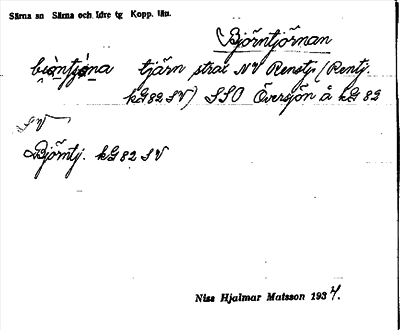 Särna sn Särna och Idre tg Kopp. län.
Björntjörnan
tjärn strax NV Renstj. (Rentj.
kG 82 SV) SSO Översjön å kG 82
SV
Björntj. kG 82 SV
Niss Hjalmar Matsson 1937.